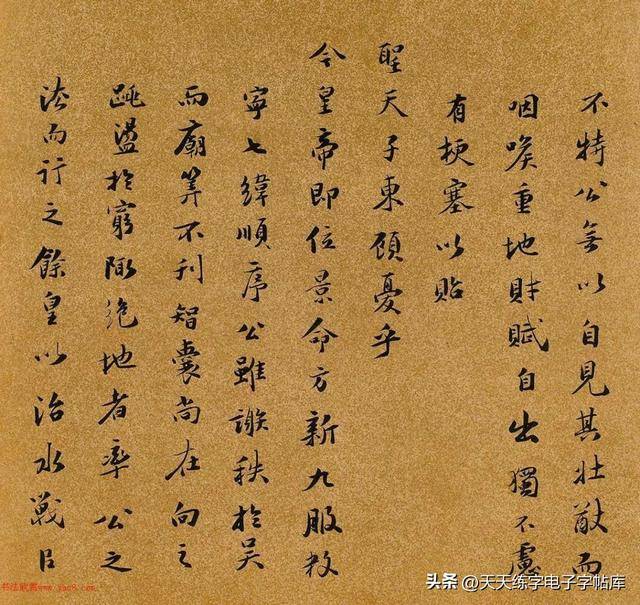 不特公無以自見其壯猷而
咽喉重地財賦自出獨不慮
有梗塞以貽
聖天子東顧憂乎
今皇帝即位景命方新九服敉
寧七緯順序公雖謝秩於吳
而廟筭不刊智囊尚在向之
跳盪於窮陬絕地者率公之
法而行之餘皇以治水戰
书法欣赏www.yac8.com
头条 @天天练字电子字帖库